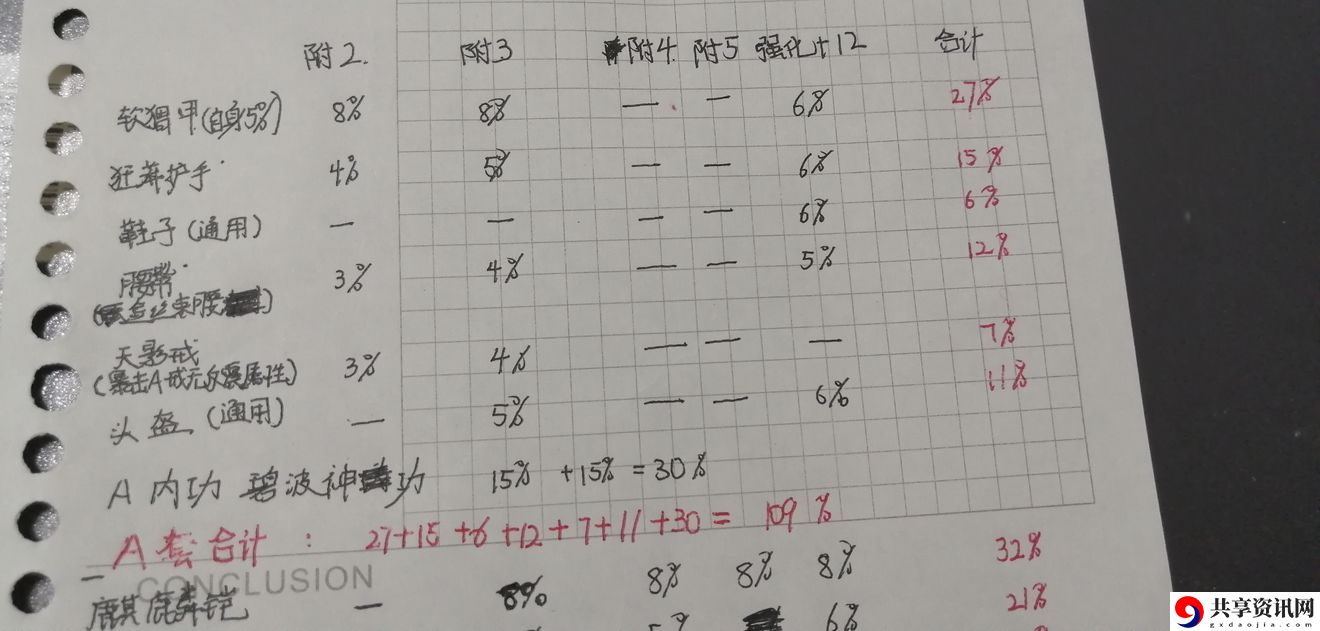 附2. 附3 附4. 附5 强化+12 合计
软猬甲(自身5%) 8% 8% — — 6% 27%
狂莽护手 4% 5% — — 6% 15%
鞋子(通用) — — — — 6% 6%
腰带 3% 4% — — 5% 12%
束腰
天影戒 3% 4% — — — 7%
(暴击A戒无反震属性)
头盔(通用) — 5% — — 6% 11%
A内功 碧波神功 15% +15% =30%
A套合计: 27+15+6+12+7+11+30= 109%
CONCLUSION
麒麟铠 — 8% 8% 8% 8% 32%
6% 21%
共享资讯网
gxdaojia.com